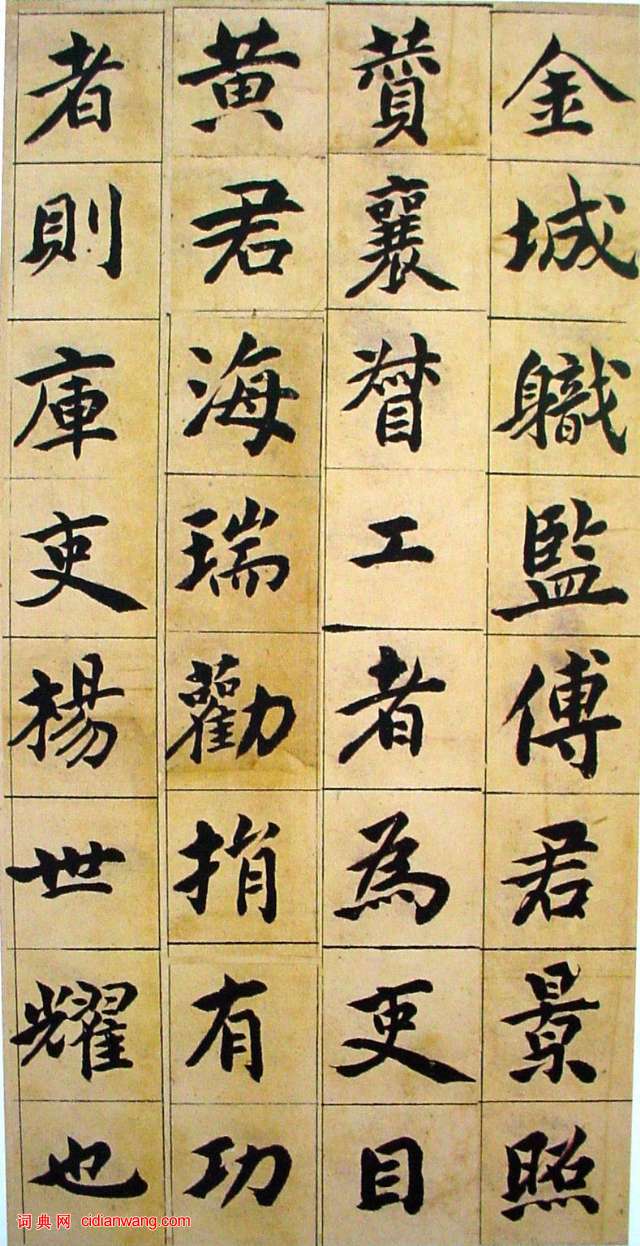 金城軄監傅君景照
賛襄督工者為吏目
黄君海瑞勸捐有功
者則庫吏楊世耀也
词典网 cidianwang.com